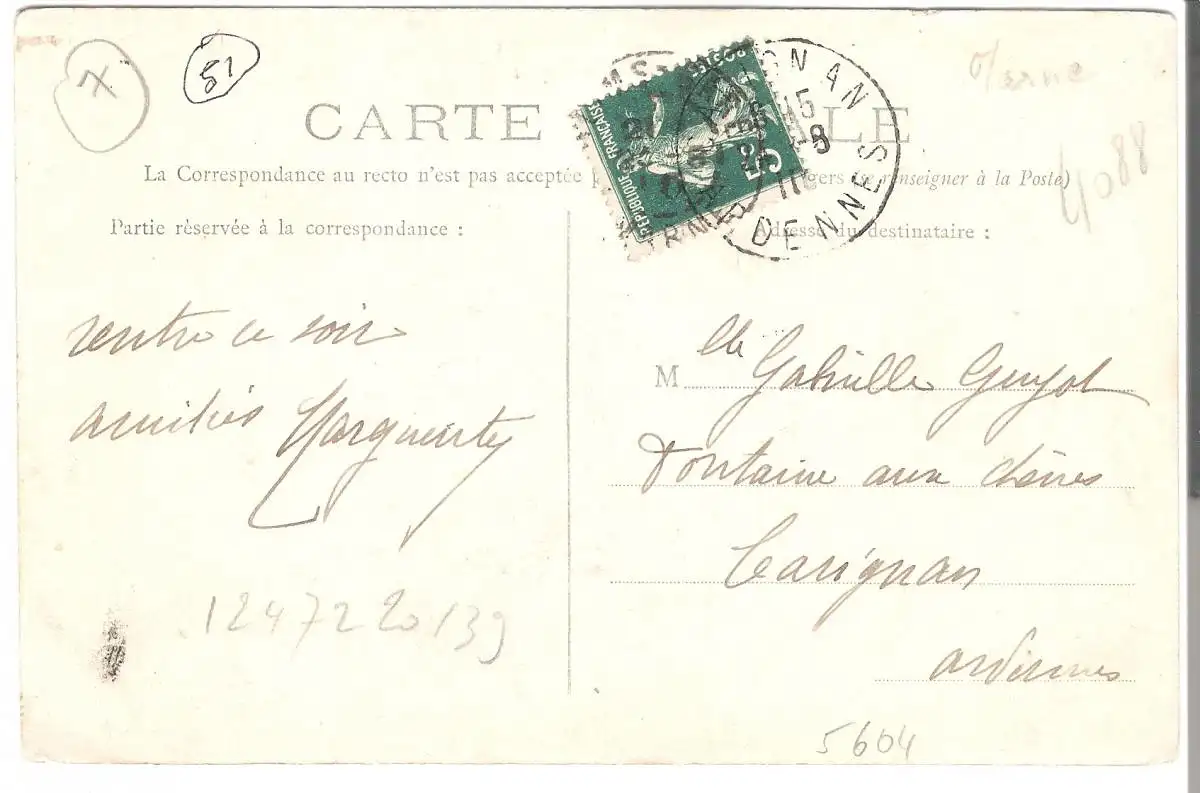 51
Marne
CARTE ALE
4088
La Correspondance au recto n'est pas acceptée gers (se renseigner à la Poste)
RÉPUBLIQUE FRANÇAISE
5
POSTES
IGNAN
15
-8
10
DENNES
Partie rèservée à la correspondance :
Adresse du destinataire :
rentre ce soir
amitiés Marguerite
M lle Gabrielle Guyot
Fontaine aux chênes
Carignan
ardennes
1247220139
5604